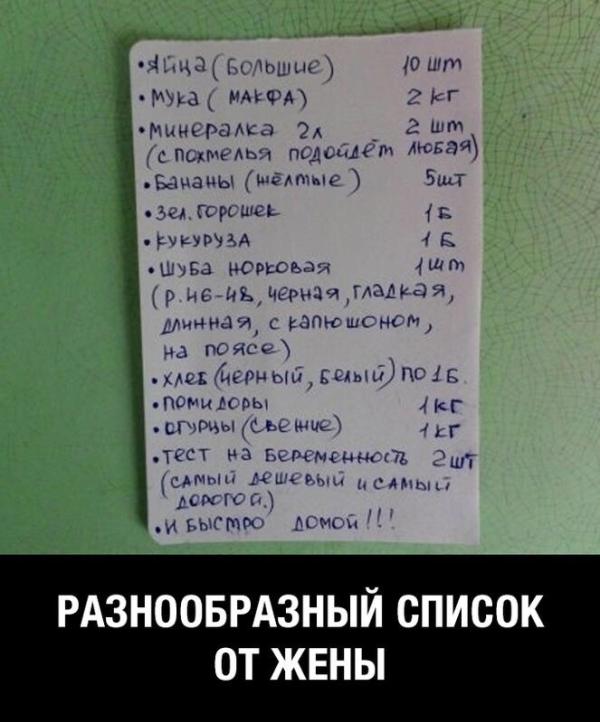 •Яйца (Большие) 10 шт
•Мука ( МАКФА) 2 кг
•минералка 2л 2 шт
(с похмелья подойдёт любая)
•Бананы (жёлтые) 5шт
•Зел. горошек 1Б
•кукуруза 1 Б
•шуба норковая 1шт
(р.46-48, черная, гладкая,
длинная, с капюшоном,
на поясе)
•хлеб (черный, белый) по 1Б.
•помидоры 1кг
•огурцы (свежие) 1кг
•тест на Беременность 2шт
(самый дешевый и самый
дорогой.)
•и Быстро домой!!!
РАЗНООБРАЗНЫЙ СПИСОК
ОТ ЖЕНЫ